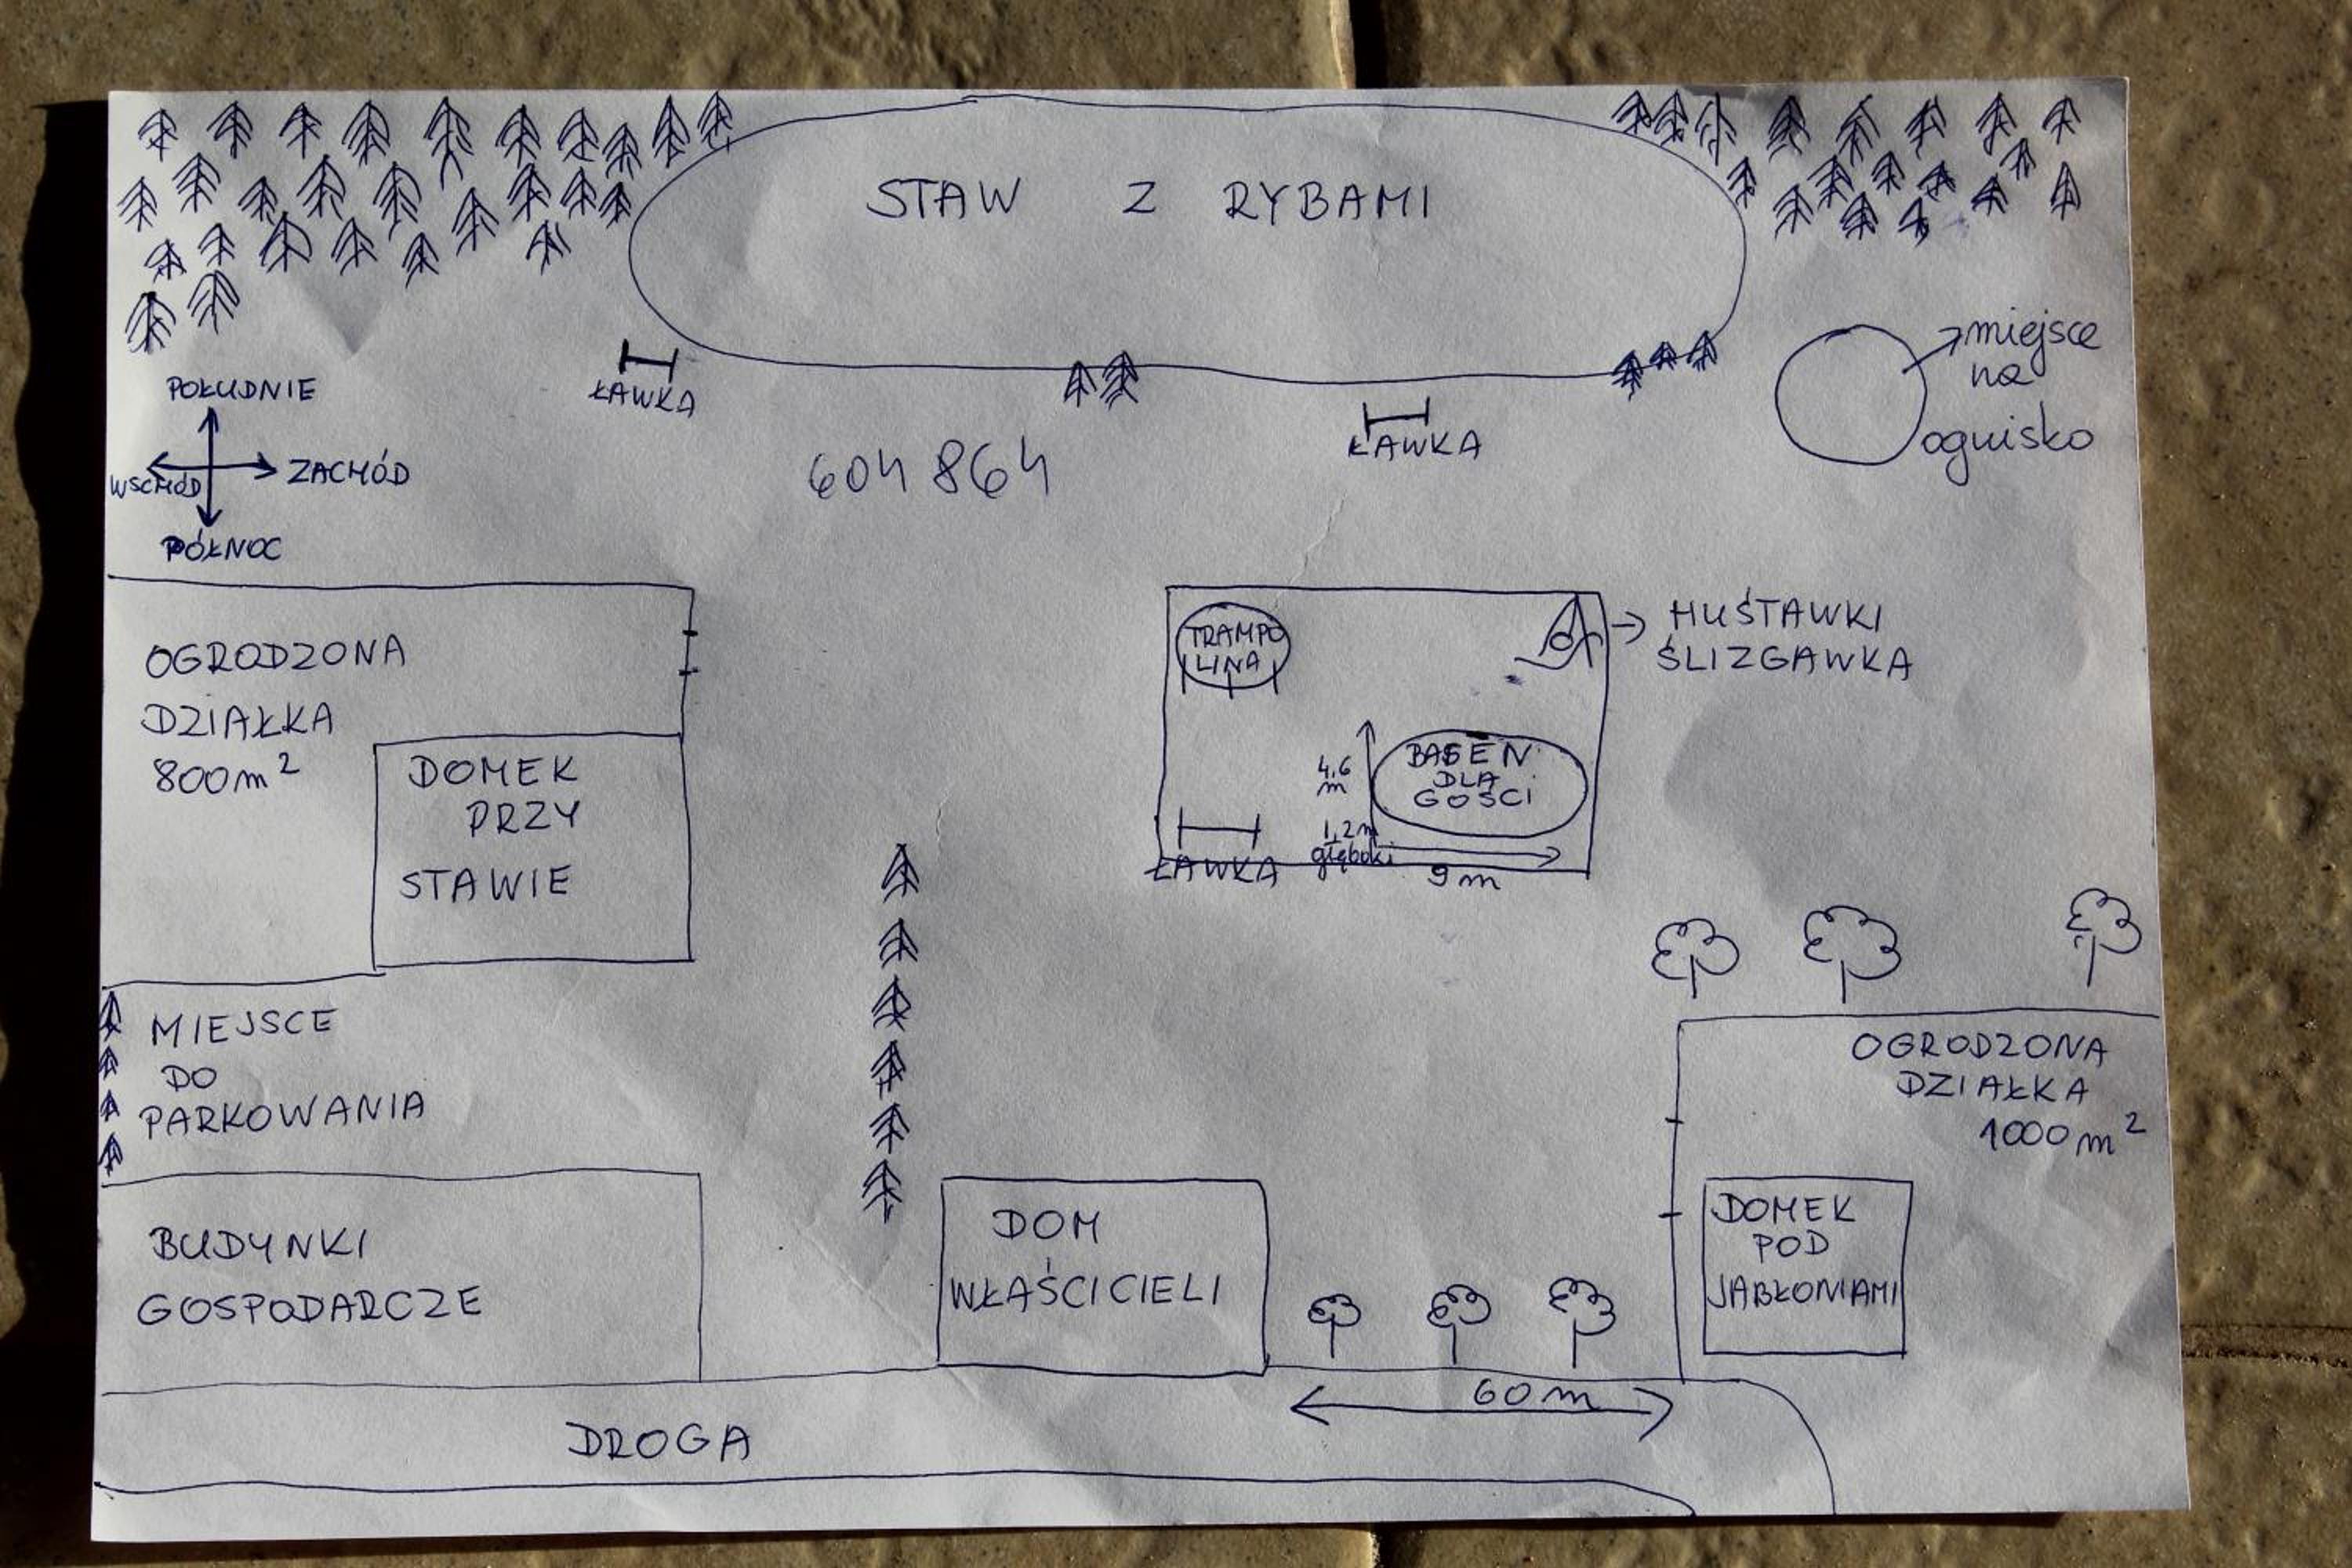 STAW Z RYBAMI
ŁAWKA
ŁAWKA
miejsce
na
ognisko
604 864
POŁUDNIE
WSCHÓD
ZACHÓD
PÓŁNOC
OGRODZONA
DZIAŁKA
800m²
DOMEK
PRZY
STAWIE
TRAMPO
LINA
HUŚTAWKI
ŚLIZGAWKA
BASEN
DLA
GOŚCI
4,6
m
1,2m
głęboki
9m
ŁAWKA
MIEJSCE
DO
PARKOWANIA
BUDYNKI
GOSPODARCZE
DOM
WŁAŚCICIELI
OGRODZONA
DZIAŁKA
1000m²
DOMEK
POD
JABŁONIAMI
60m
DROGA